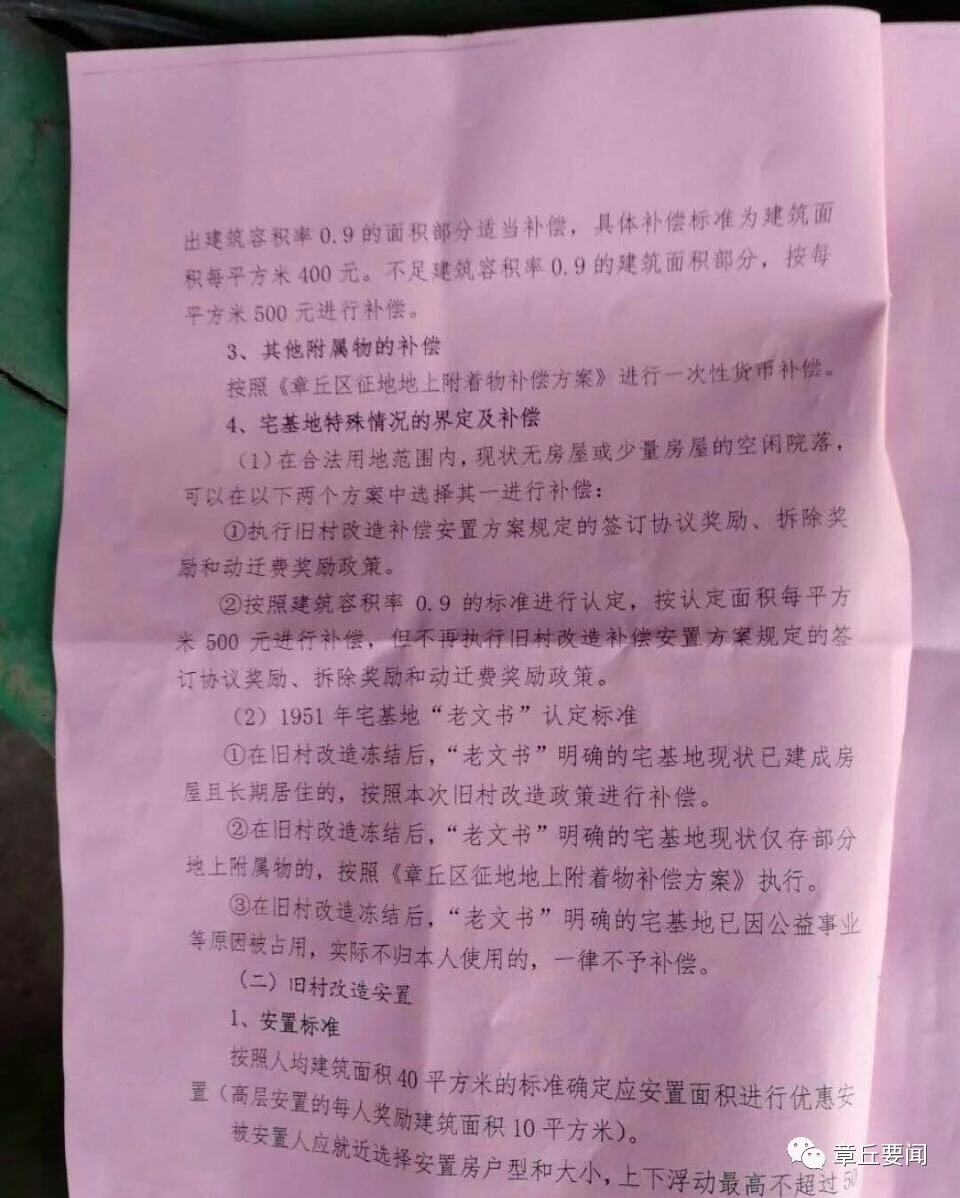 出建筑容积率 0.9 的面积部分适当补偿，具体补偿标准为建筑面
积每平方米 400 元。不足建筑容积率 0.9 的建筑面积部分，按每
平方米 500 元进行补偿。
3、其他附属物的补偿
按照《章丘区征地地上附着物补偿方案》进行一次性货币补偿。
4、宅基地特殊情况的界定及补偿
（1）在合法用地范围内，现状无房屋或少量房屋的空闲院落，
可以在以下两个方案中选择其一进行补偿：
①执行旧村改造补偿安置方案规定的签订协议奖励、拆除奖
励和动迁费奖励政策。
②按照建筑容积率 0.9 的标准进行认定，按认定面积每平方
米 500 元进行补偿，但不再执行旧村改造补偿安置方案规定的签
订协议奖励、拆除奖励和动迁费奖励政策。
（2）1951 年宅基地“老文书”认定标准
①在旧村改造冻结后，“老文书”明确的宅基地现状已建成房
屋且长期居住的，按照本次旧村改造政策进行补偿。
②在旧村改造冻结后，“老文书”明确的宅基地现状仅存部分
地上附属物的，按照《章丘区征地地上附着物补偿方案》执行。
③在旧村改造冻结后，“老文书”明确的宅基地已因公益事业
等原因被占用，实际不归本人使用的，一律不予补偿。
（二）旧村改造安置
1、安置标准
按照人均建筑面积 40 平方米的标准确定应安置面积进行优惠安
置（高层安置的每人奖励建筑面积 10 平方米）。
被安置人应就近选择安置房户型和大小，上下浮动最高不超过
章丘要闻